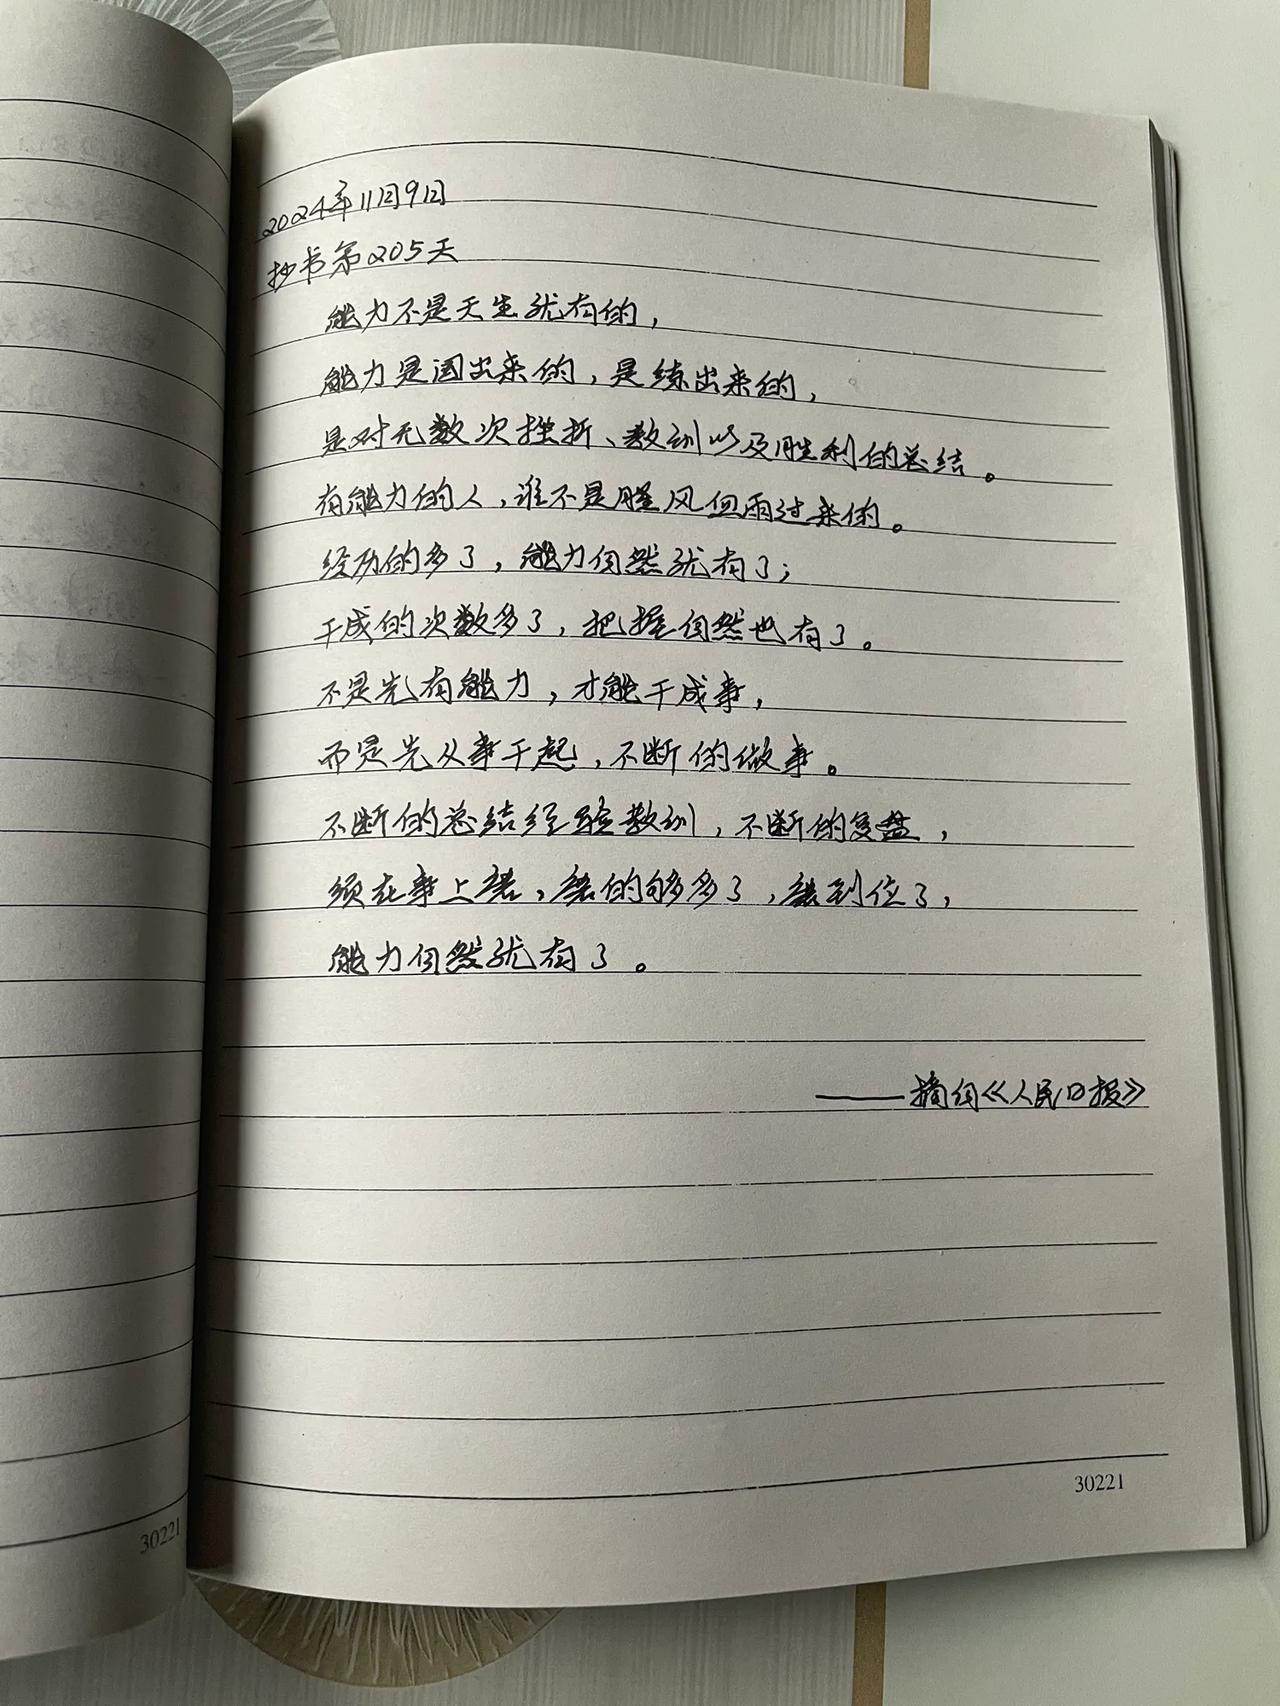 2024年11月9日
抄书第205天
能力不是天生就有的，
能力是闯出来的，是练出来的，
是对无数次挫折、教训以及胜利的总结。
有能力的人，谁不是腥风血雨过来的。
经历的多了，能力自然就有了；
干成的次数多了，把握自然也有了。
不是先有能力，才能干成事，
而是先从事干起，不断的做事。
不断的总结经验教训，不断的复盘，
须在事上磨，磨的够多了，磨到位了，
能力自然就有了。
——摘自《人民日报》
30221
30221